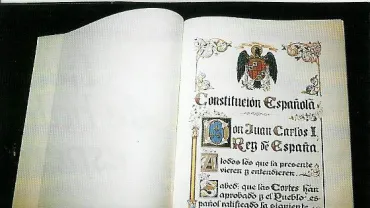 Constitución Española
Don Juan Carlos I,
Rey de España
A todos los que la presente
vieren y entendieren.
Sabed: que las Cortes han
aprobado y el Pueblo es-
pañol ratificado la siguiente